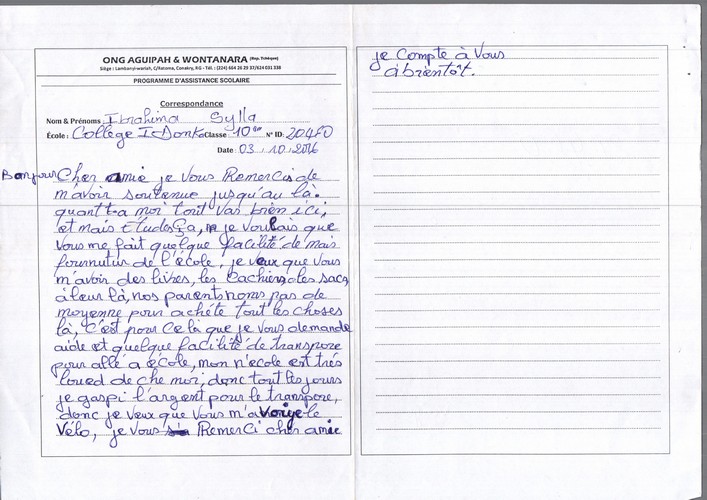 ONG AGUIPAH & WONTANARA (Rep. Tchèque)
Siège : Lambanyi-wariah, C/Ratoma, Conakry, RG - Tél. : (224) 664 26 29 37/624 031 338
PROGRAMME D'ASSISTANCE SCOLAIRE
Correspondance
Nom & Prénoms : Ibrahima Sylla
École : Collège I-Donko Classe : 10ème N° ID : 20470
Date : 03 . 10 . 2016
Bonjour Cher amie je vous Remerci de
m'avoir soutenue jusqu'au là.
quant-a moi tout vas bien ici,
et mais étudesça, je voulais que
vous me fait quelque facilité de mais
fournutur de l'école, je veux que vous
m'avoir des livres, les cachiers, les sacs
à leur là, nos parents nons pas de
moyenne pour achéte tout les choses
là, c'est pour ce là que je vous demande
aide et quelque facilité de transpore
pour allé a école, mon n'école est trés
loued de che moi, donc tout les jours
je gaspi l'argent pour le transpore,
donc je veux que vous m'avoiye le
vélo, je vous Remerci cher amie
je compte à vous
àbrientôt.